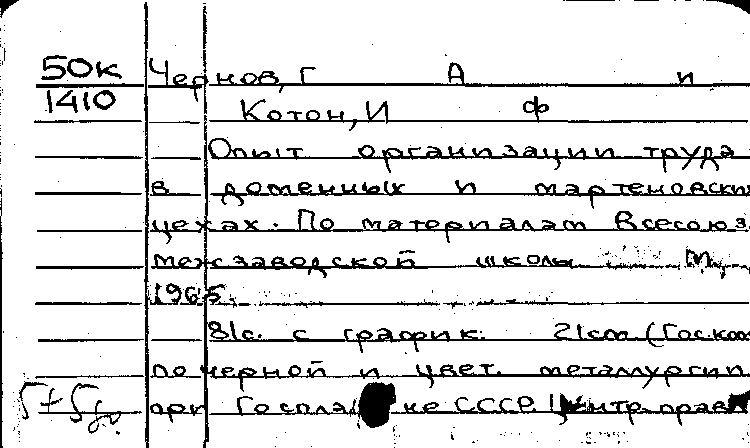 50к Чернов, Г А и
1410 Котон, И Ф
Опыт организации труда
в доменных и мартеновских
цехах. По материалам Всесоюз.
межзаводской школы М.,
1965.
81с. с график. 21см (Гос.ком
по черной и цвет. металлургии
при Госплане СССР. Центр. прав